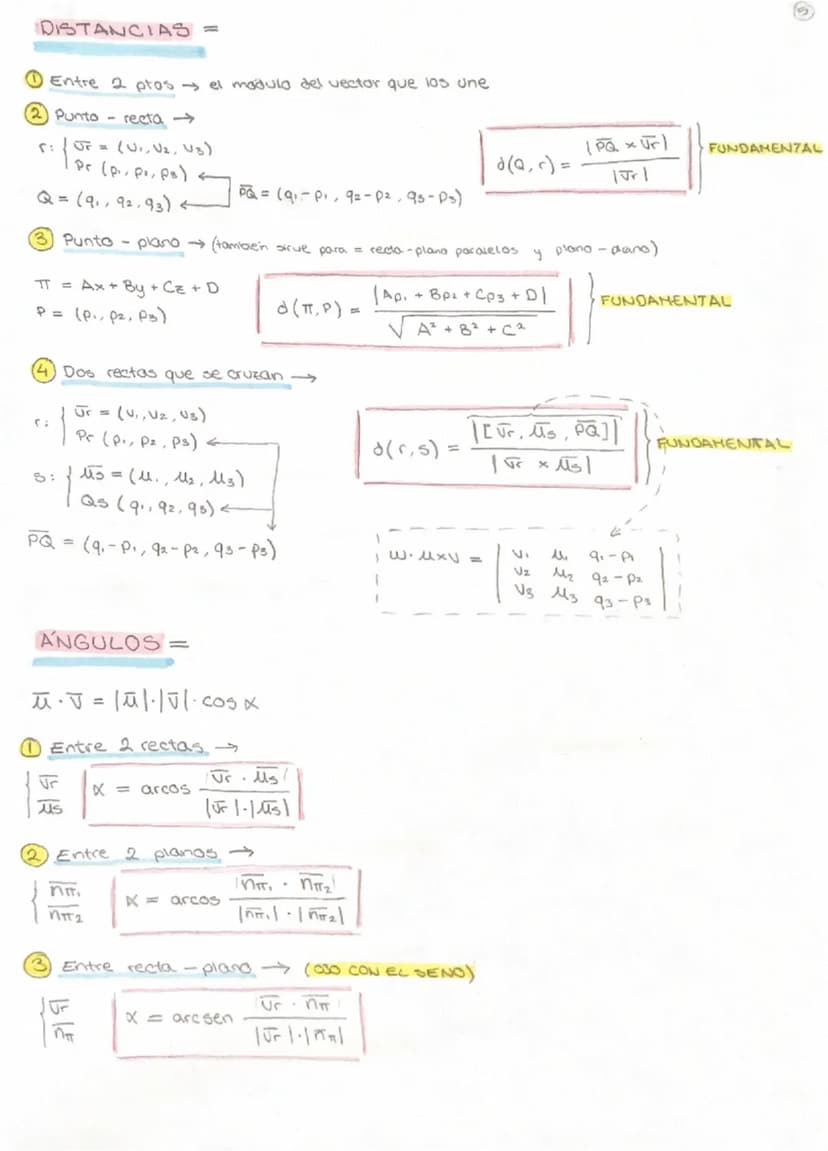 5
DISTANCIAS =
① Entre 2 ptos → el módulo del vector que los une
② Punto - recta →
r: { v̄r = (v₁, v₂, v₃)
Pr (p₁, p₂, p₃)
Q = (q₁, q₂, q₃)
P̄Q̄ = (q₁-p₁, q₂-p₂, q₃-p₃)
d(Q, r) = |P̄Q̄ × v̄r| / |v̄r|
FUNDAMENTAL
③ Punto - plano → (también sirve para = recta-plano paralelos y plano-plano)
π = Ax + By + Cz + D
P = (p₁, p₂, p₃)
d(π, P) = |Ap₁ + Bp₂ + Cp₃ + D| / √(A² + B² + C²)
FUNDAMENTAL
④ Dos rectas que se cruzan →
r: { v̄r = (v₁, v₂, v₃)
Pr (p₁, p₂, p₃)
s: { ūs = (u₁, u₂, u₃)
Qs (q₁, q₂, q₃)
P̄Q̄ = (q₁-p₁, q₂-p₂, q₃-p₃)
d(r, s) = |[v̄r, ūs, P̄Q̄]| / |v̄r × ūs|
FUNDAMENTAL
w · u × v = | v₁ u₁ q₁-p₁
v₂ u₂ q₂-p₂
v₃ u₃ q₃-p₃ |
ÁNGULOS =
ū · v̄ = |ū| · |v̄| · cos α
① Entre 2 rectas →
{ v̄r
ūs
α = arcos |v̄r · ūs| / |v̄r| · |ūs|
② Entre 2 planos →
{ n̄π₁
n̄π₂
α = arcos |n̄π₁ · n̄π₂| / |n̄π₁| · |n̄π₂|
③ Entre recta - plano → (OJO CON EL SENO)
{ v̄r
n̄π
α = arcsen |v̄r · n̄π| / |v̄r| · |n̄π|